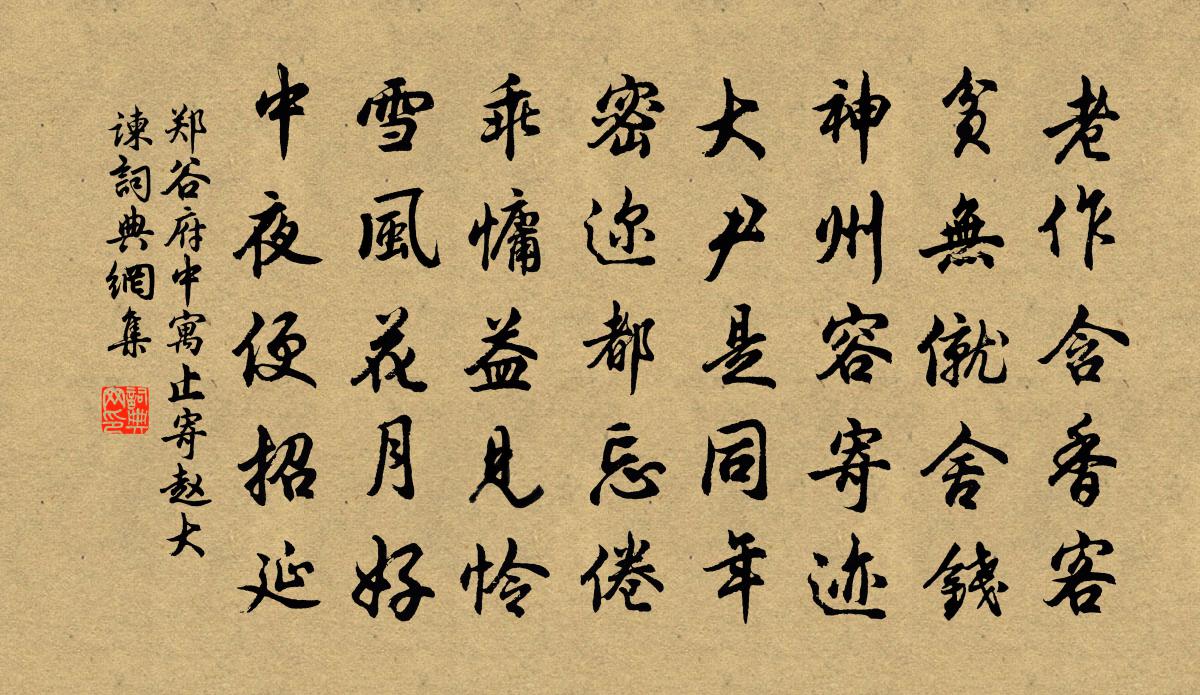 老作含香客
貧無僦舍錢
神州容寄迹
大尹是同年
密迩都忘倦
乖慵益見怜
雪風花月好
中夜便招延
郑谷府中寓止寄赵大
谏詞典網集
詞典
网印